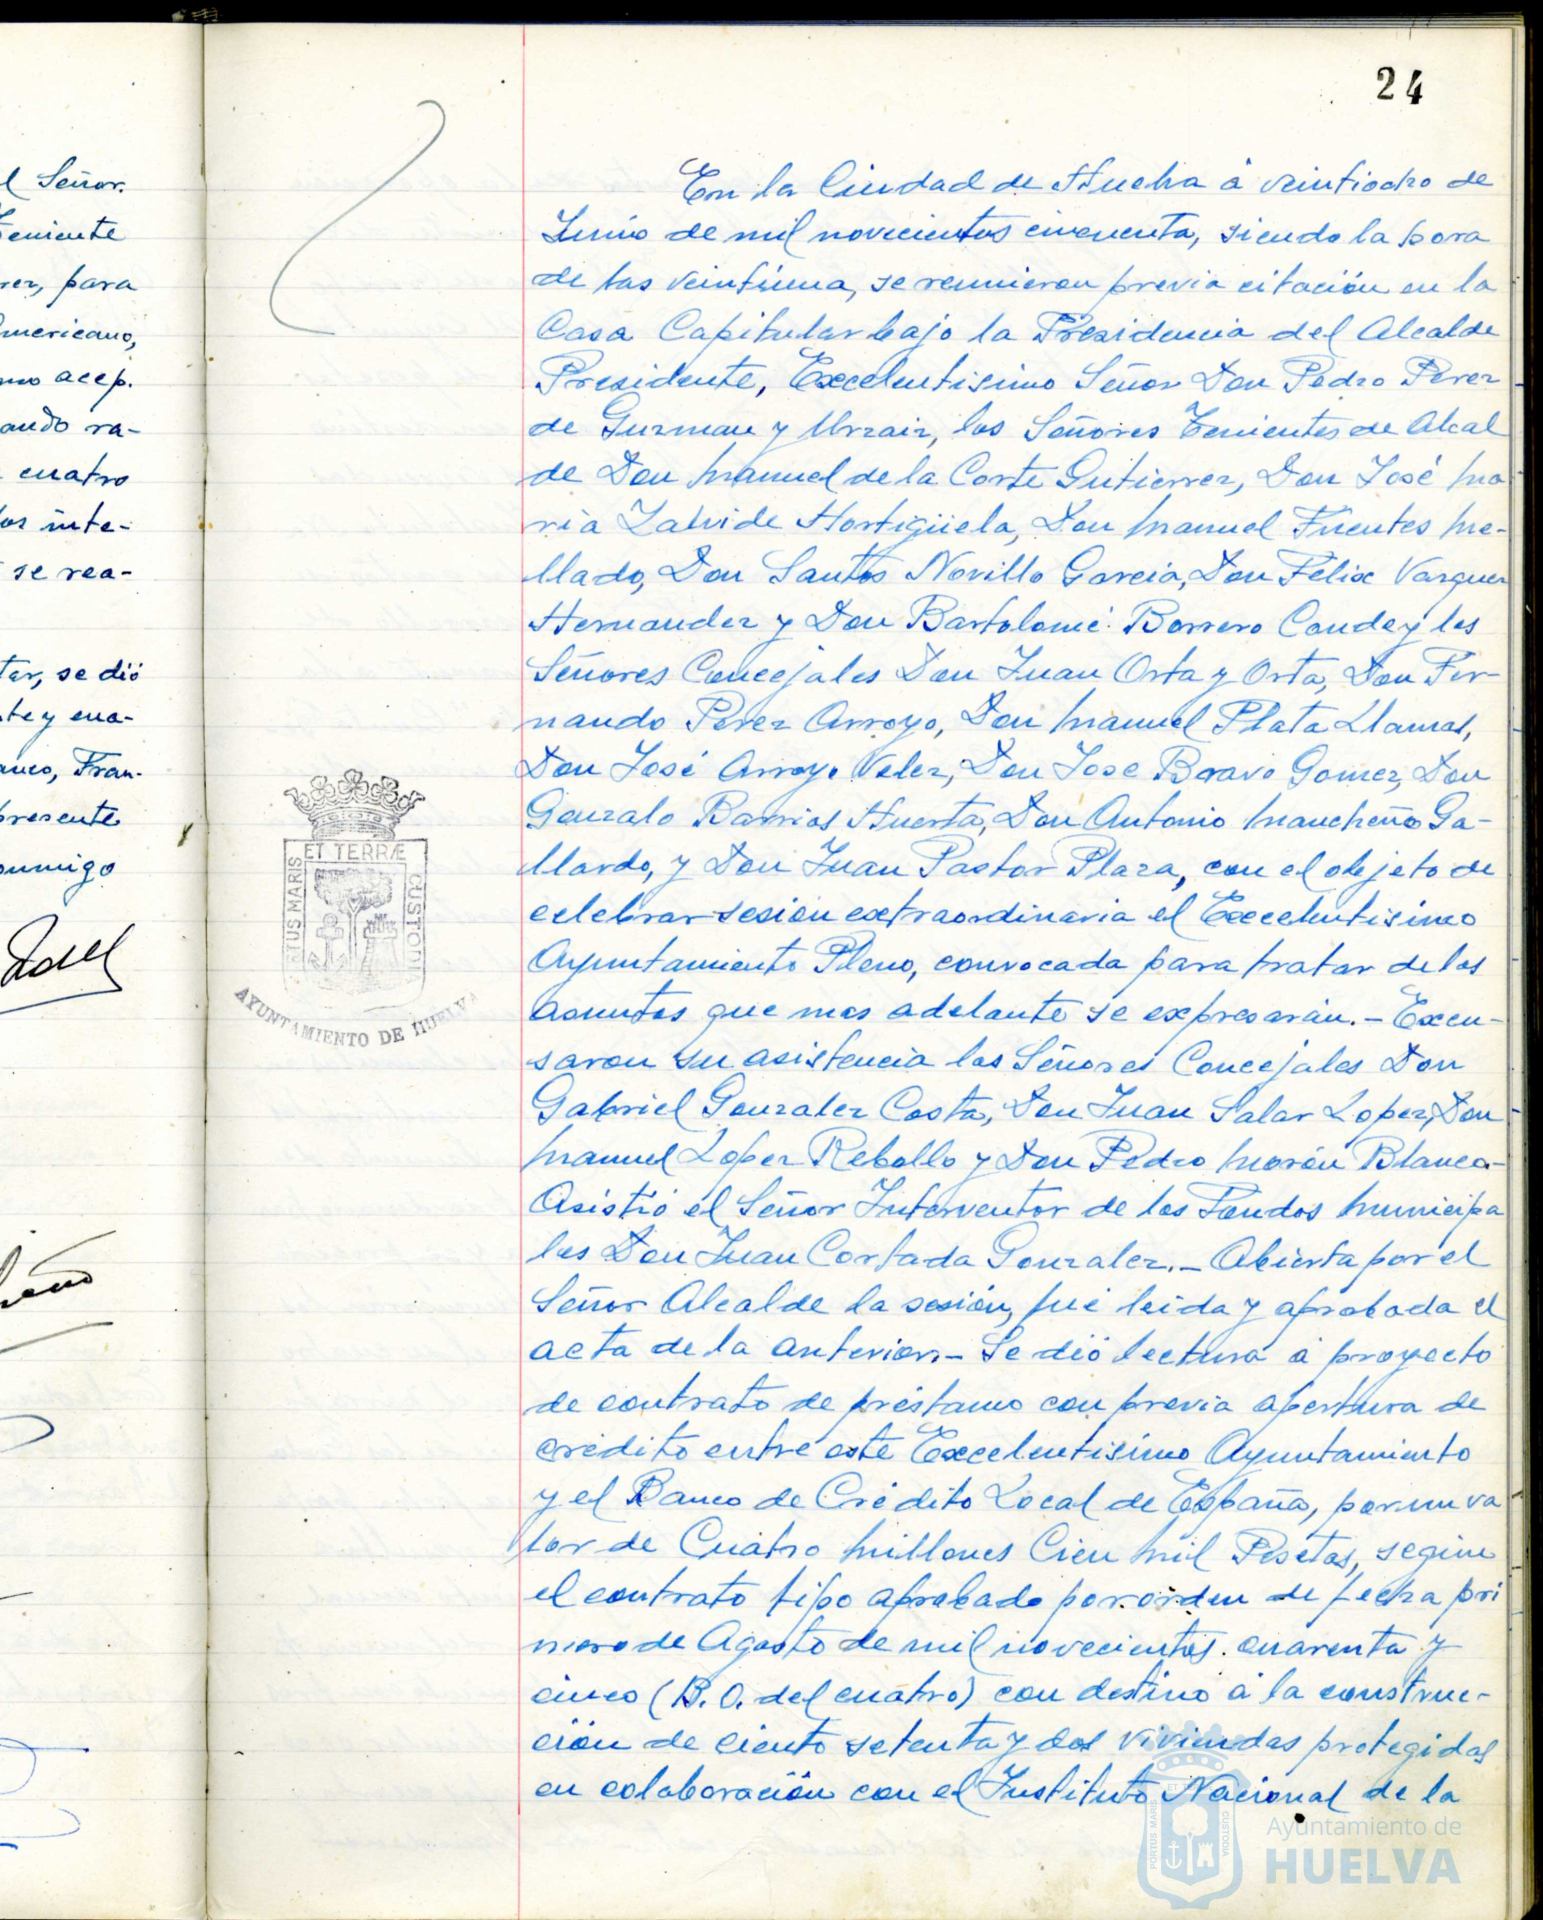 24
l Señor.
Teniente
rez, para
Americano,
mo acep.
ando ra-
cuatro
los inte-
se rea-
tar, se dió
te y cua-
anco, Fran-
presente
onmigo
En la Ciudad de Huelva á veintiocho de
Junio de mil novecientos cincuenta, siendo la hora
de las veintiuna, se reunieron previa citación en la
Casa Capitular bajo la Presidencia del Alcalde
Presidente, Excelentisimo Señor Don Pedro Perez
de Guzman y Urzaiz, los Señores Tenientes de Alcal
de Don Manuel de la Corte Gutierrez, Don José Ma
ria Zalvide Hortigüela, Don Manuel Fuentes Me-
llado, Don Santos Novillo Garcia, Don Félix Vazquez
Hernandez y Don Bartolomé Borrero Conde y los
Señores Concejales Don Juan Orta y Orta, Don Fer-
nando Perez Arroyo, Don Manuel Plata Llamas,
Don José Arroyo Velez, Don Jose Bravo Gomez, Don
Gonzalo Barrios Huerta, Don Antonio Mancheño Ga-
llardo, y Don Juan Pastor Plaza, con el objeto de
celebrar sesión extraordinaria el Excelentisimo
Ayuntamiento Pleno, convocada para tratar de los
asuntos que mas adelante se expresarán.- Excu-
saron su asistencia los Señores Concejales Don
Gabriel Gonzalez Costa, Don Juan Salar Lopez, Don
Manuel Lopez Rebollo y Don Pedro Morón Blanco-
Asistió el Señor Interventor de los Fondos Municipa
les Don Juan Cortada Gonzalez.- Abierta por el
Señor Alcalde la sesión, fué leida y aprobada el
acta de la anterior.- Se dió lectura á proyecto
de contrato de préstamo con previa apertura de
crédito entre este Excelentisimo Ayuntamiento
y el Banco de Crédito Local de España, por un va
lor de Cuatro Millones Cien Mil Pesetas, según
el contrato tipo aprobado por orden de fecha pri
mero de Agosto de mil novecientos cuarenta y
cinco (B.O. del cuatro) con destino á la construc-
ción de ciento setenta y dos viviendas protegidas
en colaboración con el Instituto Nacional de la
PORTUS MARIS ET TERRÆ CUSTODIA
AYUNTAMIENTO DE HUELVA
PORTUS MARIS ET TERRÆ CUSTODIA
Ayuntamiento de
HUELVA